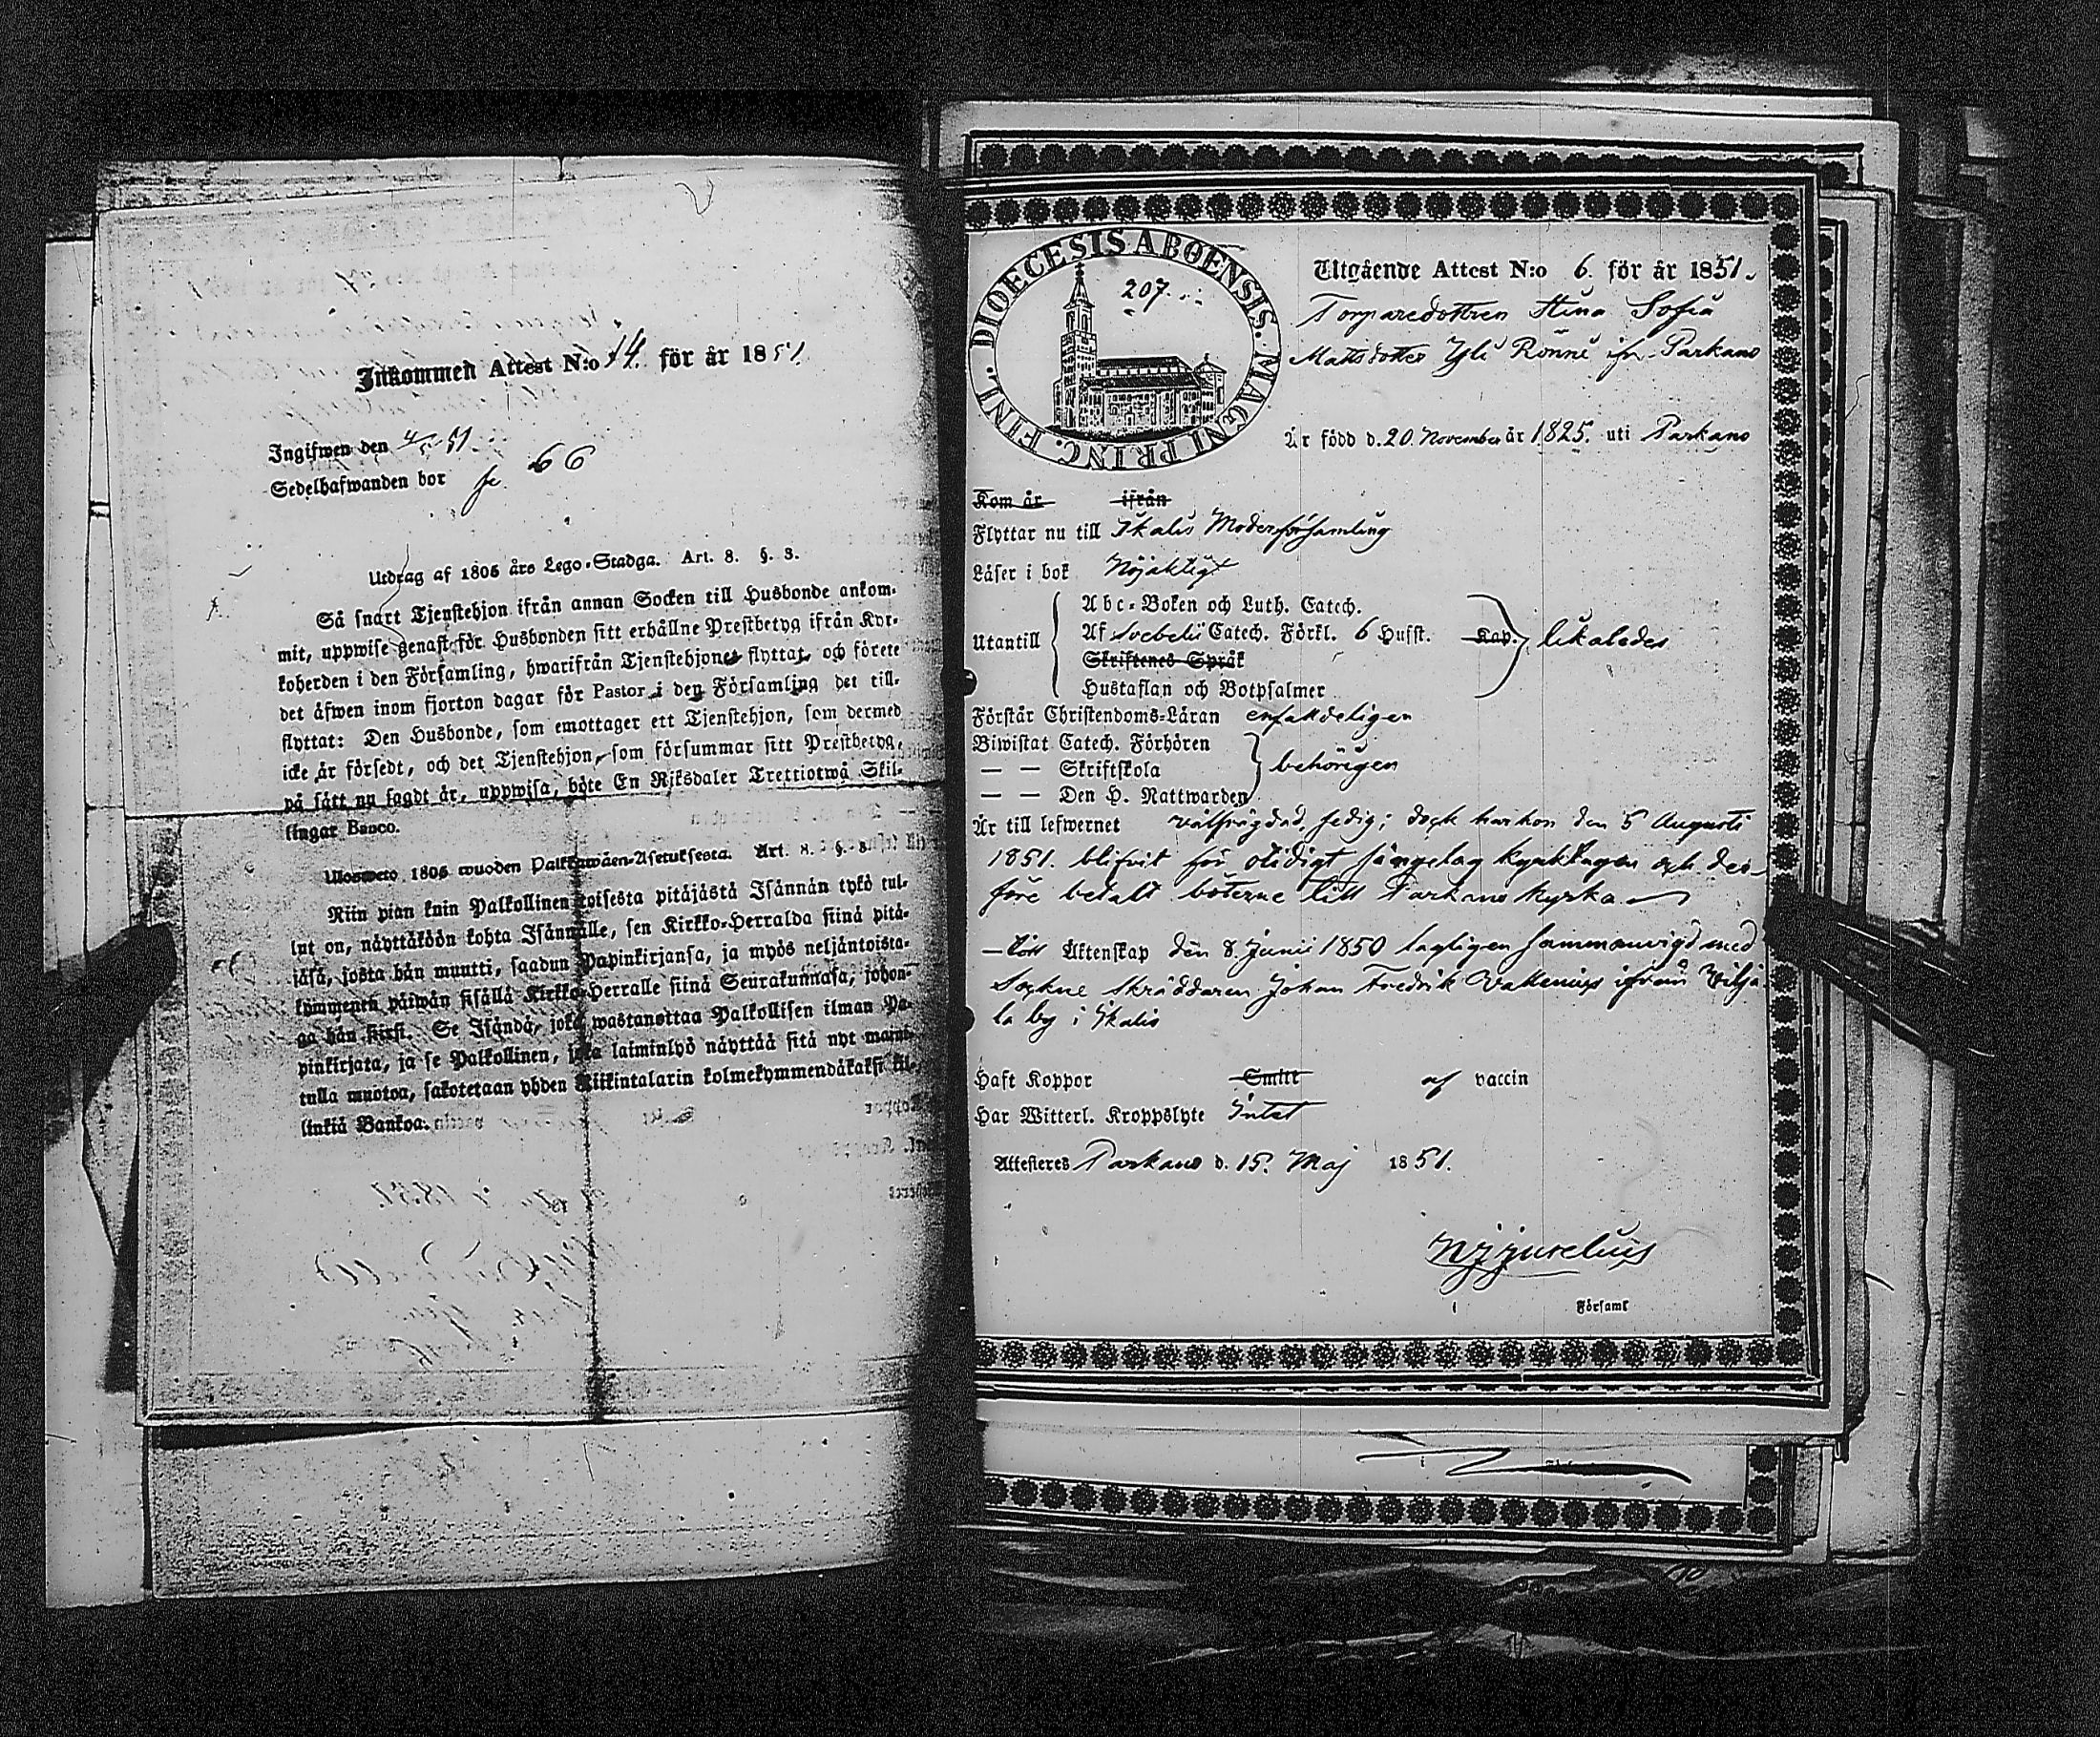 Inkommen Attest N:o 14. för år 1851.
Ingifwen den 4/5 51.
Sedelhafwanden bor 66
Utdrag af 1805 års Lego-Stadga. Art. 8. §. 3.
Så snart Tjenstehjon ifrån annan Socken till Husbonde ankom-
mit, uppwise genast för Husbonden sitt erhållne Prestbetyg ifrån Kyr-
koherden i den Församling, hwarifrån Tjenstehjonet flyttat, och förete
det äfwen inom fjorton dagar för Pastor i den Församling det till-
flyttat: Den Husbonde, som emottager ett Tjenstehjon, som dermed
icke är försedt, och det Tjenstehjon, som försummar sitt Prestbetyg,
på sätt nu sagdt är, uppwisa, böte En Riksdaler Trettiotwå Skil-
lingar Banco.
Ulosweto 1805 wuoden Palkkawäen-Asetuksesta. Art. 8. §. 3.
Niin pian kuin Palkollinen toisesta pitäjästä Isännän tykö tul-
lut on, näyttäköön kohta Isännälle, sen Kirkko-Herralda siinä pitä-
jäsä, josta hän muutti, saadun Papinkirjansa, ja myös neljäntoista-
kymmenen päiwän sisällä Kirkko-Herralle siinä Seurakunnasa, johon-
ga hän siirsi. Se Isändä, joka wastanottaa Palkollisen ilman Pa-
pinkirjata, ja se Palkollinen, joka laiminlyö näyttää sitä nyt mainit-
tulla muotoa, sakotetaan yhden Riikintalarin kolmekymmendäkaksi kil-
linkiä Bankoa.
DIOECESIS ABOENSIS. MAGNI PRINC. FINL.
207.
Utgående Attest N:o 6. för år 1851.
Torparedottren Stina Sofia
Mattsdotter Yli Rönni ifr. Parkano
Är född d. 20. November år 1825. uti Parkano
Kom år ifrån
Flyttar nu till Ikalis Moderförsamling
Läser i bok Nöjaktigt
Utantill
Abc-Boken och Luth. Catech.
Af Svebelii Catech. Förkl. 6 Hufst. Kap. likaledes
Skriftenes Språk
Hustaflan och Botpsalmer
Förstår Christendoms-Läran enfaldeligen
Biwistat Catech. Förhören
— — Skriftskola behörigen
— — Den H. Nattwarden
Är till lefwernet välfrägdad, ledig; dock har hon den 5 Augusti
1851. blifvit för otidigt sängelag och der-
före betalt böterne till Parkano kyrka.
— till Äktenskap den 8. Junii 1850 lagligen sammanvigd med
Sockne Skräddaren Johan Fredrik Vallenius ifrån Vilja-
la by i Ikalis
Haft Koppor Smitt af vaccin
Har Witterl. Kroppslyte Intet
Attesteres Parkano d. 15. Maj 1851.
Församl